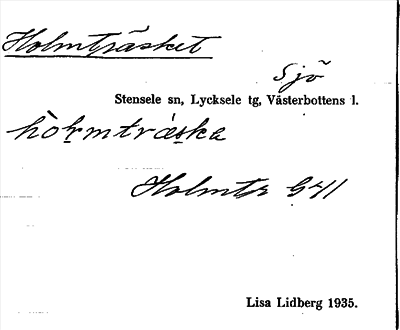 Holmträsket
Sjö
Stensele sn, Lycksele tg, Västerbottens l.
hòḷmträ́ṣka
Holmtr G41
Lisa Lidberg 1935.